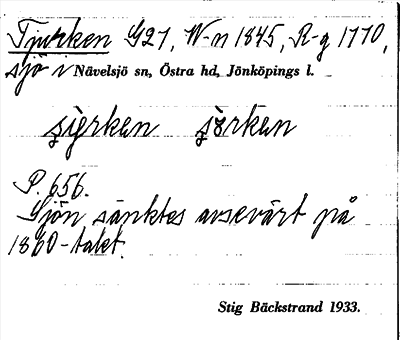 Tjurken G27, W-n 1845, R-g 1770,
sjö i Nävelsjö sn, Östra hd, Jönköpings l.
P. 656.
Sjön sänktes avsevärt på
1860-talet.
Stig Bäckstrand 1933.